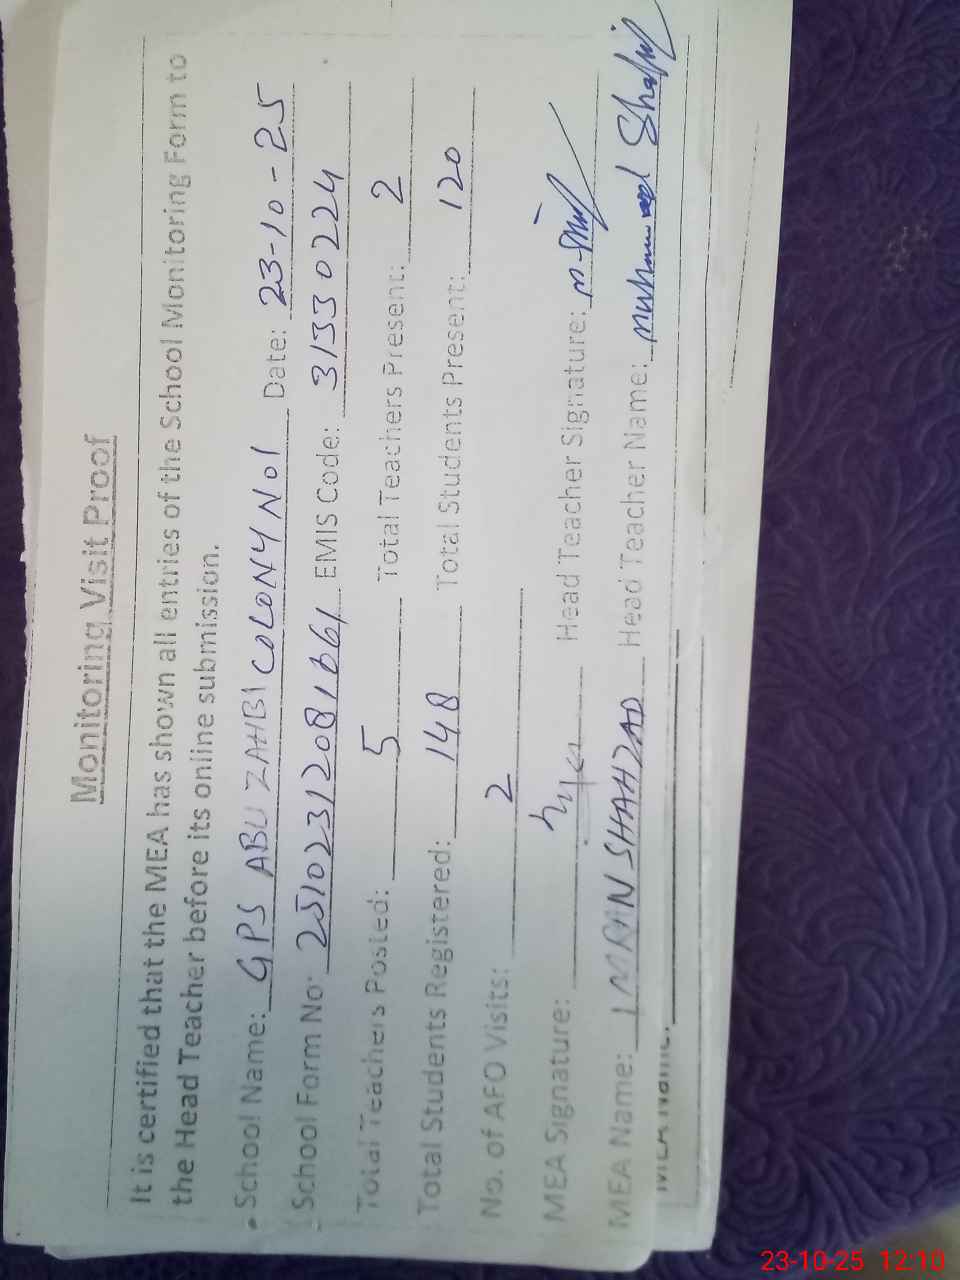 Monitoring Visit Proof
It is certified that the MEA has shown all entries of the School Monitoring Form to
the Head Teacher before its online submission.
School Name: GPS ABU ZAHBI COLONY No1 Date: 23-10-25
School Form No: 25102312081661 EMIS Code: 31330224
Total Teachers Posted: 5 Total Teachers Present: 2
Total Students Registered: 148 Total Students Present: 120
No. of AFO Visits: 2
MEA Signature: Head Teacher Signature:
MEA Name: IMRAN SHAHZAD Head Teacher Name: Muhammad Shafiq
MEA Name:
23-10-25 12:10